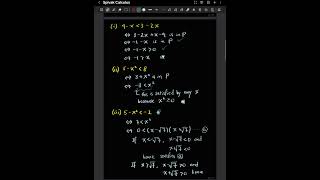 Spivak Calculus
(i) 4-x<3-2x
⇔ 3-2x+x-4 is in P
⇔ -1-x is in P
⇔ -1-x>0
⇔ -1>x
(ii) 5-x²<8
⇔ 3+x² is in P
⇔ -3<x²
this is satisfied by any x
because x²≥0
(iii) 5-x²<-2
⇔ 7<x²
⇔ 0<(x-√7)(x+√7)
If x<-√7, x-√7<0 and
x+√7<0
have satisfies
If x>√7, x-√7>0 and
x+√7>0 have